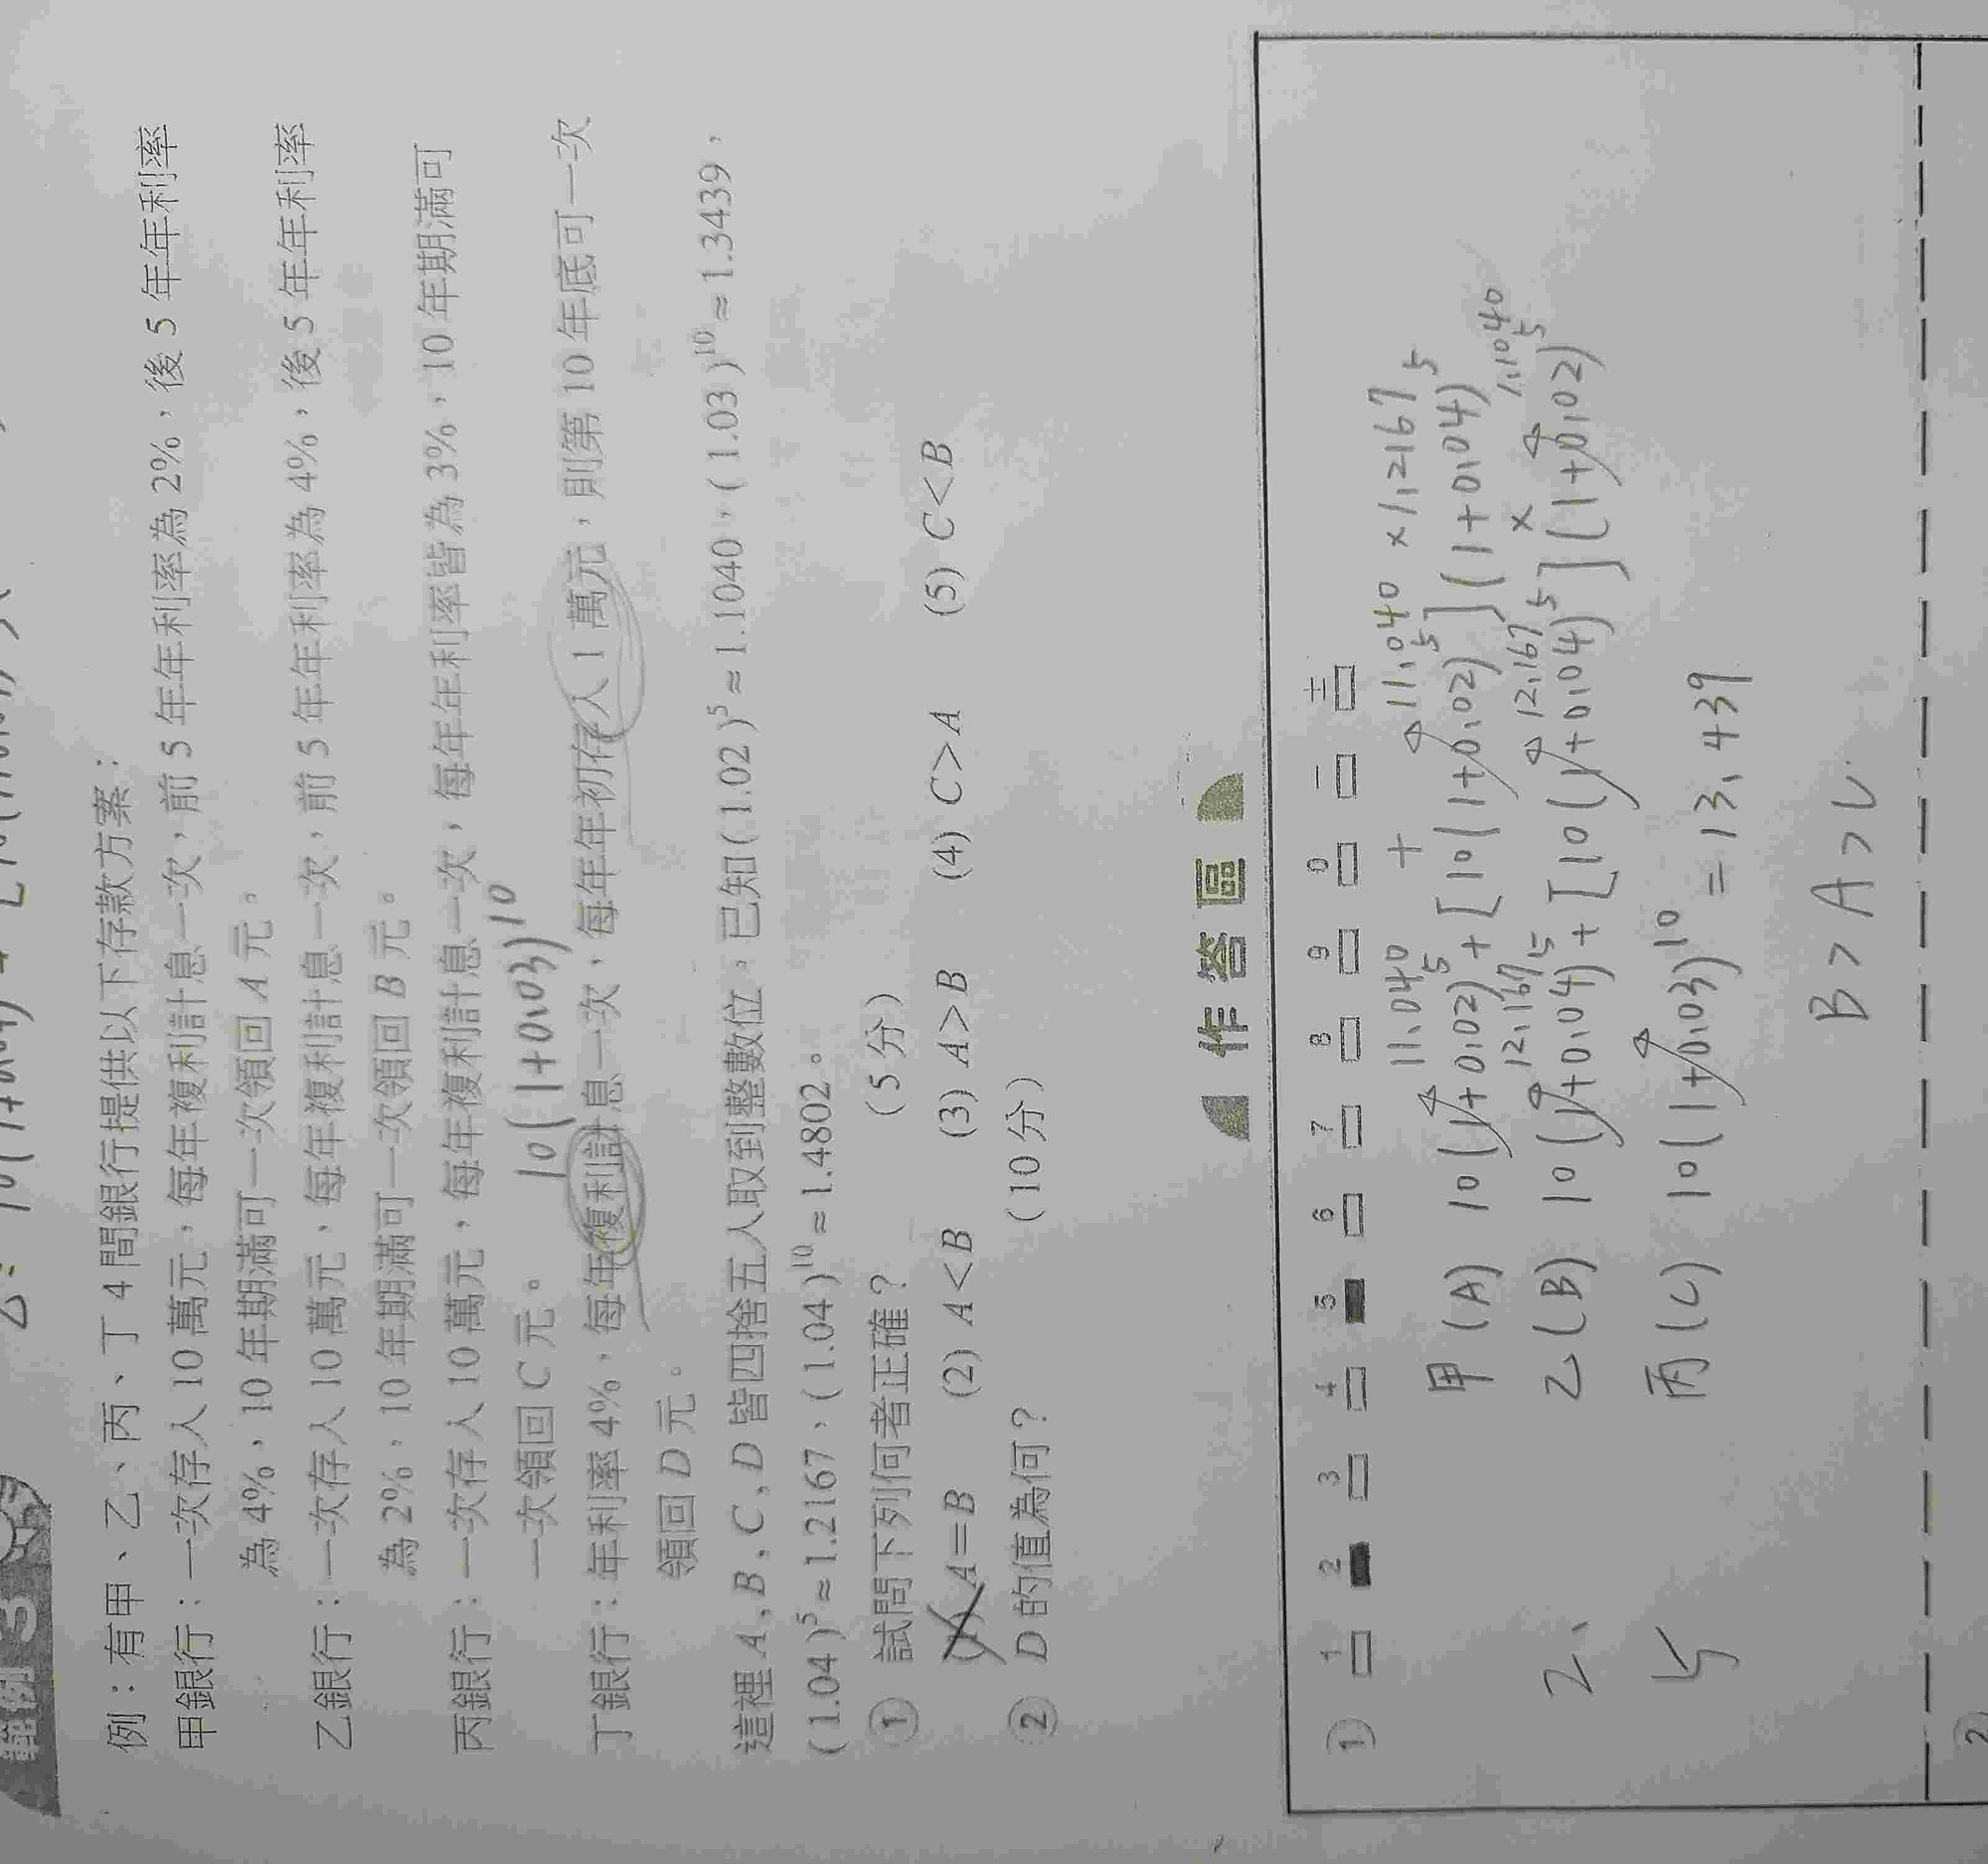 範例 3
例：有甲、乙、丙、丁 4 間銀行提供以下存款方案：
甲銀行：一次存入 10 萬元，每年複利計息一次，前 5 年年利率為 2%，後 5 年年利率
為 4%，10 年期滿可一次領回 A 元。
乙銀行：一次存入 10 萬元，每年複利計息一次，前 5 年年利率為 4%，後 5 年年利率
為 2%，10 年期滿可一次領回 B 元。
丙銀行：一次存入 10 萬元，每年複利計息一次，每年年利率皆為 3%，10 年期滿可
一次領回 C 元。 10(1+0.03)^10
丁銀行：年利率 4%，每年複利計息一次，每年年初存入 1 萬元，則第 10 年底可一次
領回 D 元。
這裡 A，B，C，D 皆四捨五入取到整數位。已知(1.02)^5≈1.1040，(1.03)^10≈1.3439，
(1.04)^5≈1.2167、(1.04)^10≈1.4802。
① 試問下列何者正確？ (5分)
(1) A=B (2) A<B (3) A>B (4) C>A (5) C<B
② D 的值為何？ (10分)
作答區
① 1 2 3 4 5 6 7 8 9 0 - ±
11.040 + 11.040 ×1.2167
甲(A) 10(1+0.02)^5+[10(1+0.02)^5](1+0.04)^5
12.167 12.167 × 1.1040
2、 乙(B) 10(1+0.04)^5+[10(1+0.04)^5](1+0.02)^5
5 丙(C) 10(1+0.03)^10 = 13.439
B>A>C
②